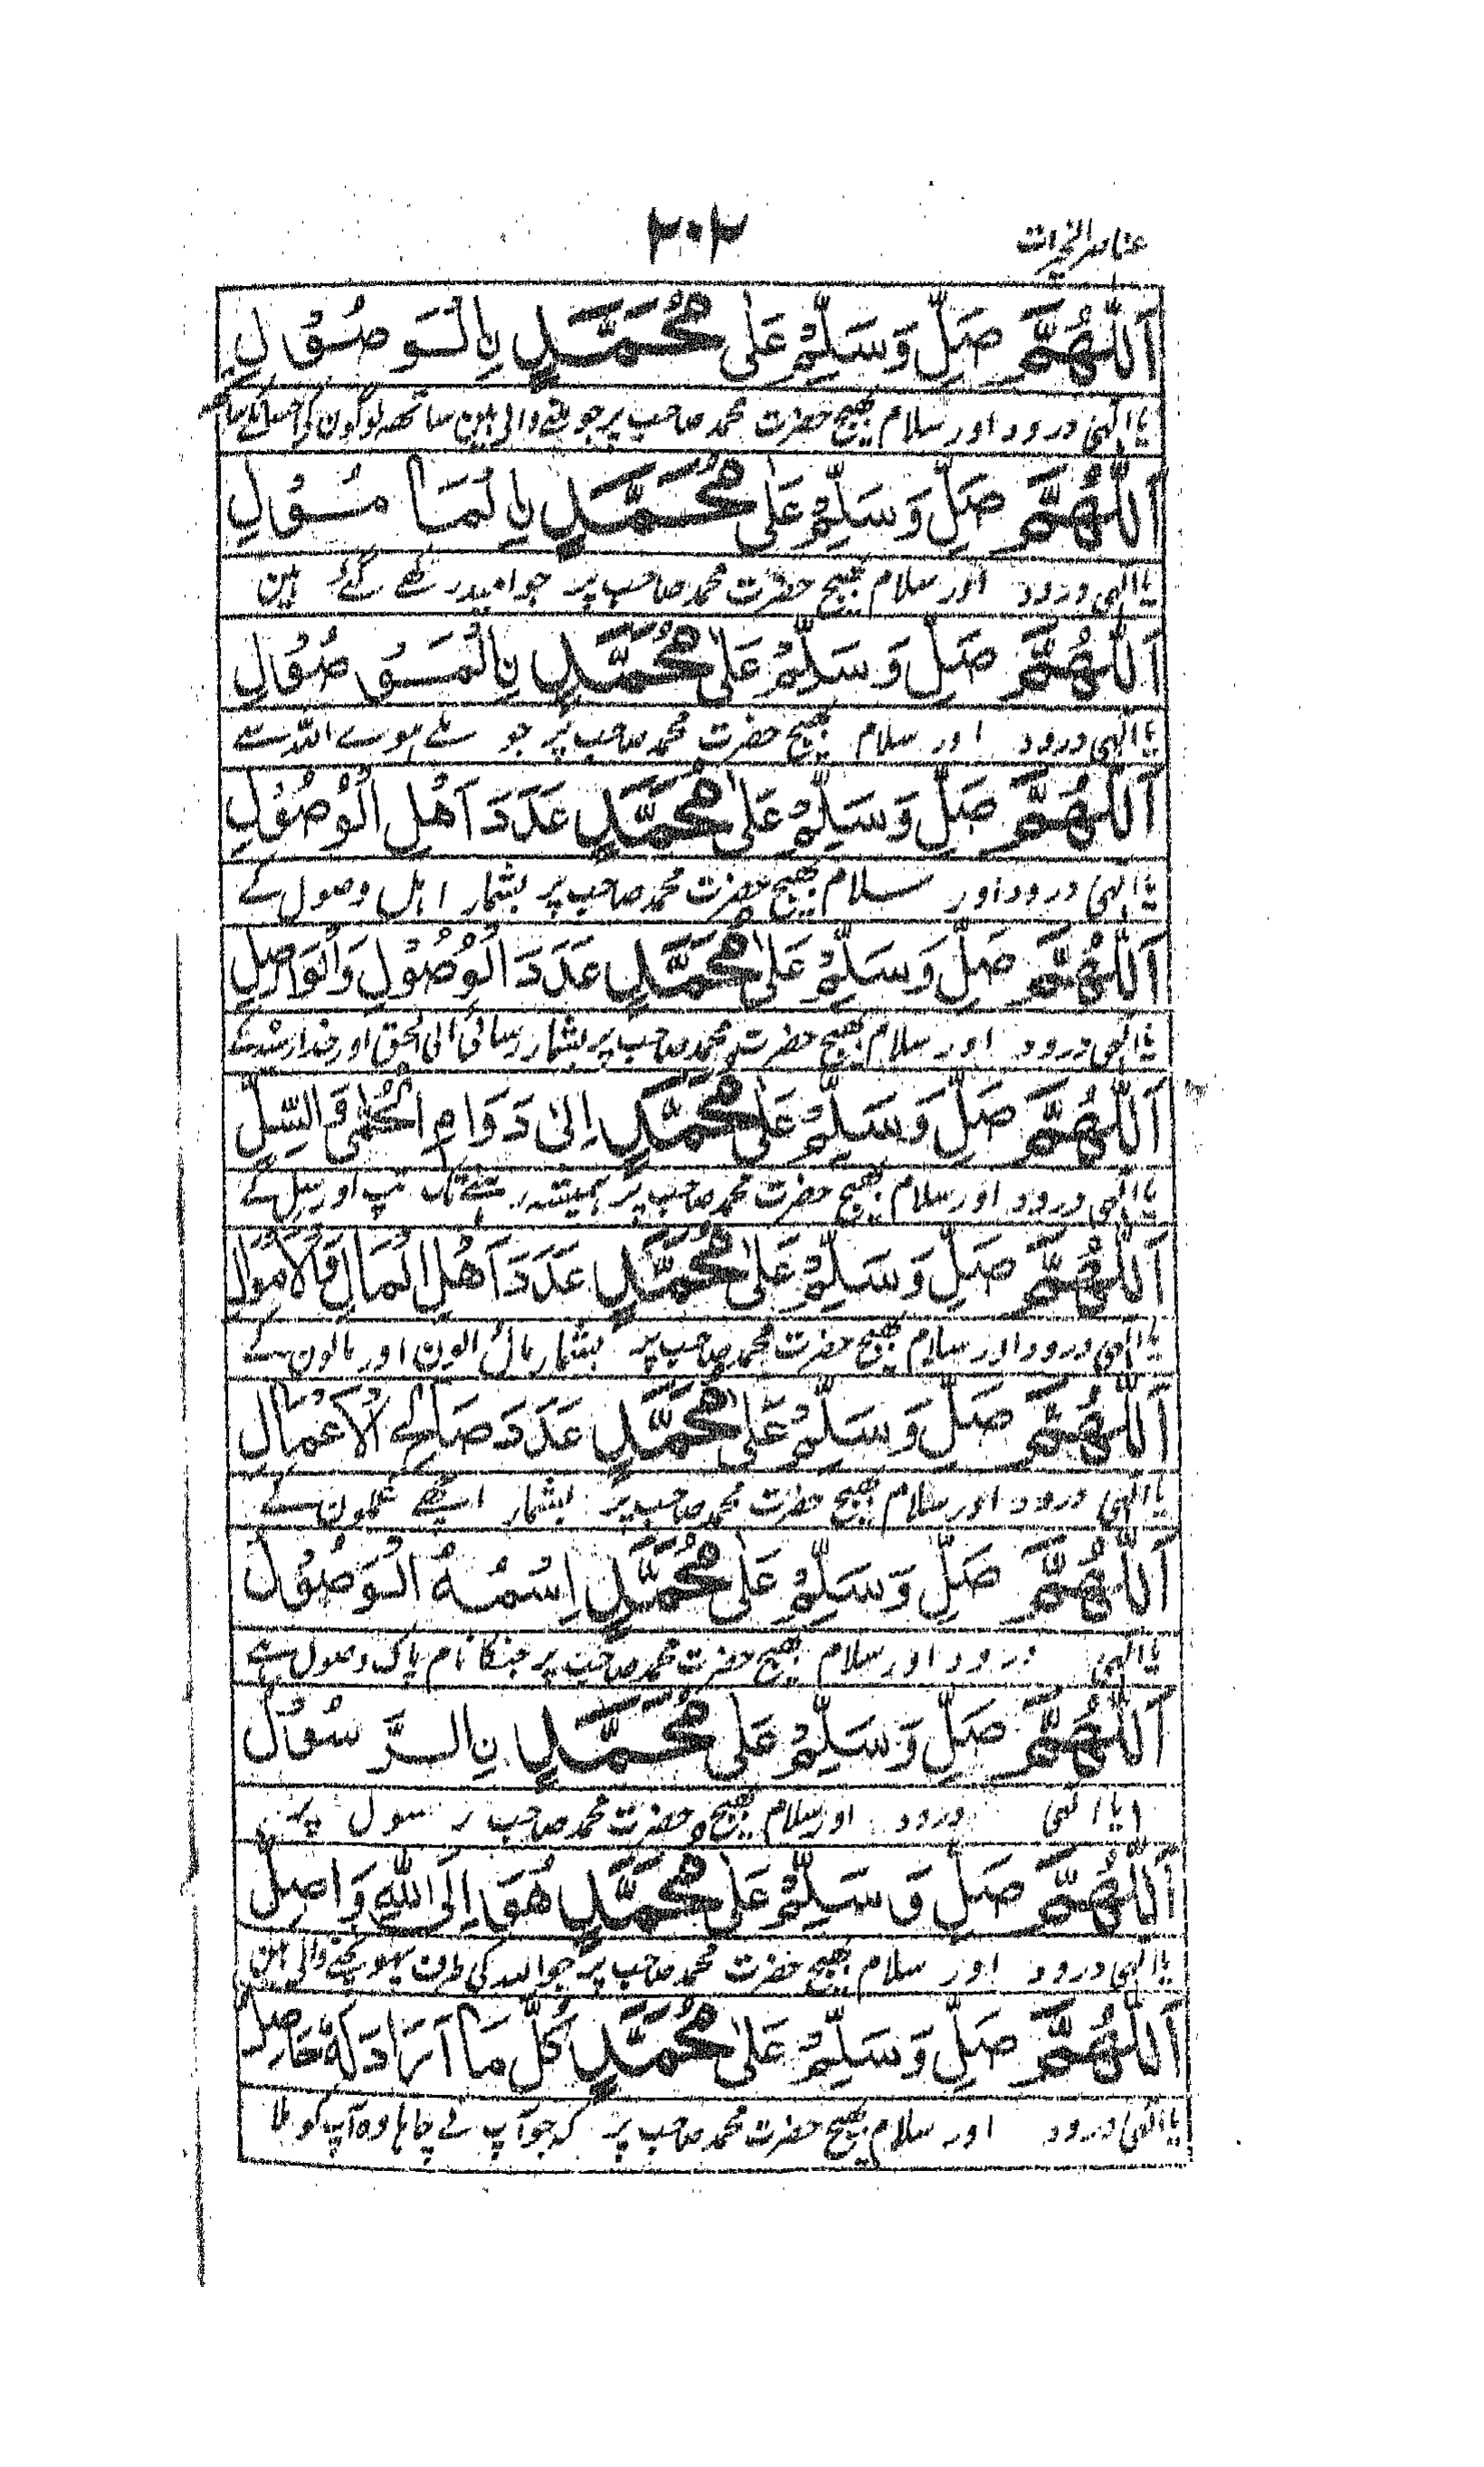 عناصر الخیرات
۲۰۲
اَللّٰهُمَّ صَلِّ وَسَلِّمْ عَلٰى مُحَمَّدٍ نِالْوَصُوْلِ
یا الٰہی درود اور سلام بھیج حضرت محمد صاحب پر جو ملنے والی ہین ساتھ لوگون کی
اَللّٰهُمَّ صَلِّ وَسَلِّمْ عَلٰى مُحَمَّدٍ نِالْمَامُوْلِ
یا الٰہی درود اور سلام بھیج حضرت محمد صاحب پر جو امید رکھے گئے ہین
اَللّٰهُمَّ صَلِّ وَسَلِّمْ عَلٰى مُحَمَّدٍ نِالْمَوْصُوْلِ
یا الٰہی درود اور سلام بھیج حضرت محمد صاحب پر جو ملے ہوے اللہ سے
اَللّٰهُمَّ صَلِّ وَسَلِّمْ عَلٰى مُحَمَّدٍ عَدَدَ اَهْلِ الْوُصُوْلِ
یا الٰہی درود اور سلام بھیج حضرت محمد صاحب پر بشمار اہل وصول کے
اَللّٰهُمَّ صَلِّ وَسَلِّمْ عَلٰى مُحَمَّدٍ عَدَدَ الْوُصُوْلِ وَالْوَاصِلِ
یا الٰہی درود اور سلام بھیج حضرت محمد صاحب پر بشمار رسائی الی الحق اور خدا رسیدہ کے
اَللّٰهُمَّ صَلِّ وَسَلِّمْ عَلٰى مُحَمَّدٍ اِلٰى دَوَامِ الْحُمّٰى وَالسِّلِّ
یا الٰہی درود اور سلام بھیج حضرت محمد صاحب پر ہمیشہ رہنے تک تپ اور سِل کے
اَللّٰهُمَّ صَلِّ وَسَلِّمْ عَلٰى مُحَمَّدٍ عَدَدَ اَهْلِ الْمَالِ وَالْاَمْوَالِ
یا الٰہی درود اور سلام بھیج حضرت محمد صاحب پر بشمار مال والون اور مالون کے
اَللّٰهُمَّ صَلِّ وَسَلِّمْ عَلٰى مُحَمَّدٍ عَدَدَ صَالِحِ الْاَعْمَالِ
یا الٰہی درود اور سلام بھیج حضرت محمد صاحب پر بشمار اچھے عملون کے
اَللّٰهُمَّ صَلِّ وَسَلِّمْ عَلٰى مُحَمَّدٍ اِسْمُهُ الْوَصُوْلُ
یا الٰہی درود اور سلام بھیج حضرت محمد صاحب پر جنکا نام پاک وصول ہے
اَللّٰهُمَّ صَلِّ وَسَلِّمْ عَلٰى مُحَمَّدٍ نِالرَّسُوْلِ
یا الٰہی درود اور سلام بھیج حضرت محمد صاحب رسول پر
اَللّٰهُمَّ صَلِّ وَسَلِّمْ عَلٰى مُحَمَّدٍ هُوَ اِلَى اللّٰهِ وَاصِلٌ
یا الٰہی درود اور سلام بھیج حضرت محمد صاحب پر جو اللہ کی طرف پہونچنے والی ہین
اَللّٰهُمَّ صَلِّ وَسَلِّمْ عَلٰى مُحَمَّدٍ كُلُّ مَا اَرَادَ لَهٗ حَاصِلٌ
یا الٰہی درود اور سلام بھیج حضرت محمد صاحب پر کہ جو آپ نے چاہا وہ آپ کو ملا